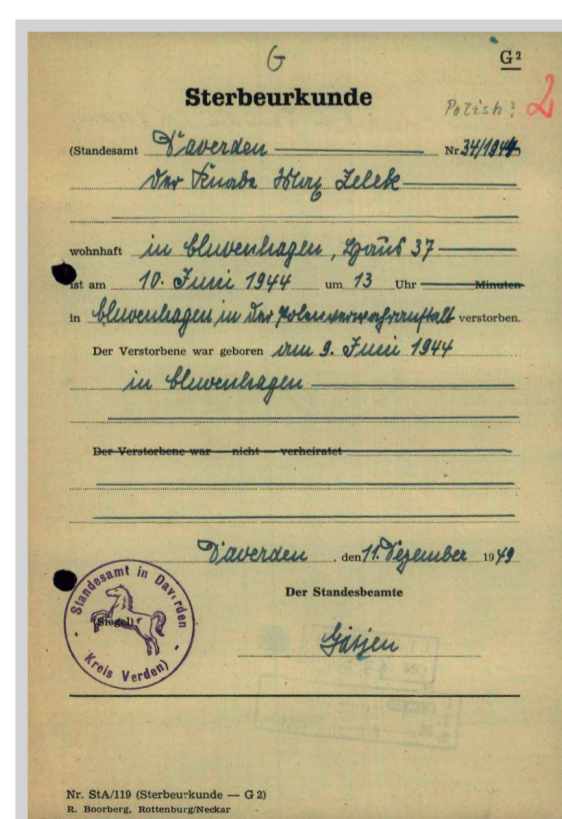 G
G 2
Sterbeurkunde
Polish? 2
(Standesamt Daverden Nr. 34/1944
Der Knabe Max Zelek
wohnhaft in Cluvenhagen, Haus 37
ist am 10. Juni 1944 um 13 Uhr Minuten
in Cluvenhagen in der Polenverwahranstalt verstorben.
Der Verstorbene war geboren am 9. Juni 1944
in Cluvenhagen
Der Verstorbene war — nicht — verheiratet
Daverden, den 11. Dezember 1949
Standesamt in Daverden
Der Standesbeamte
(Siegel)
Kreis Verden)
Nr. StA/119 (Sterbeurkunde — G 2)
R. Boorberg, Rottenburg/Neckar